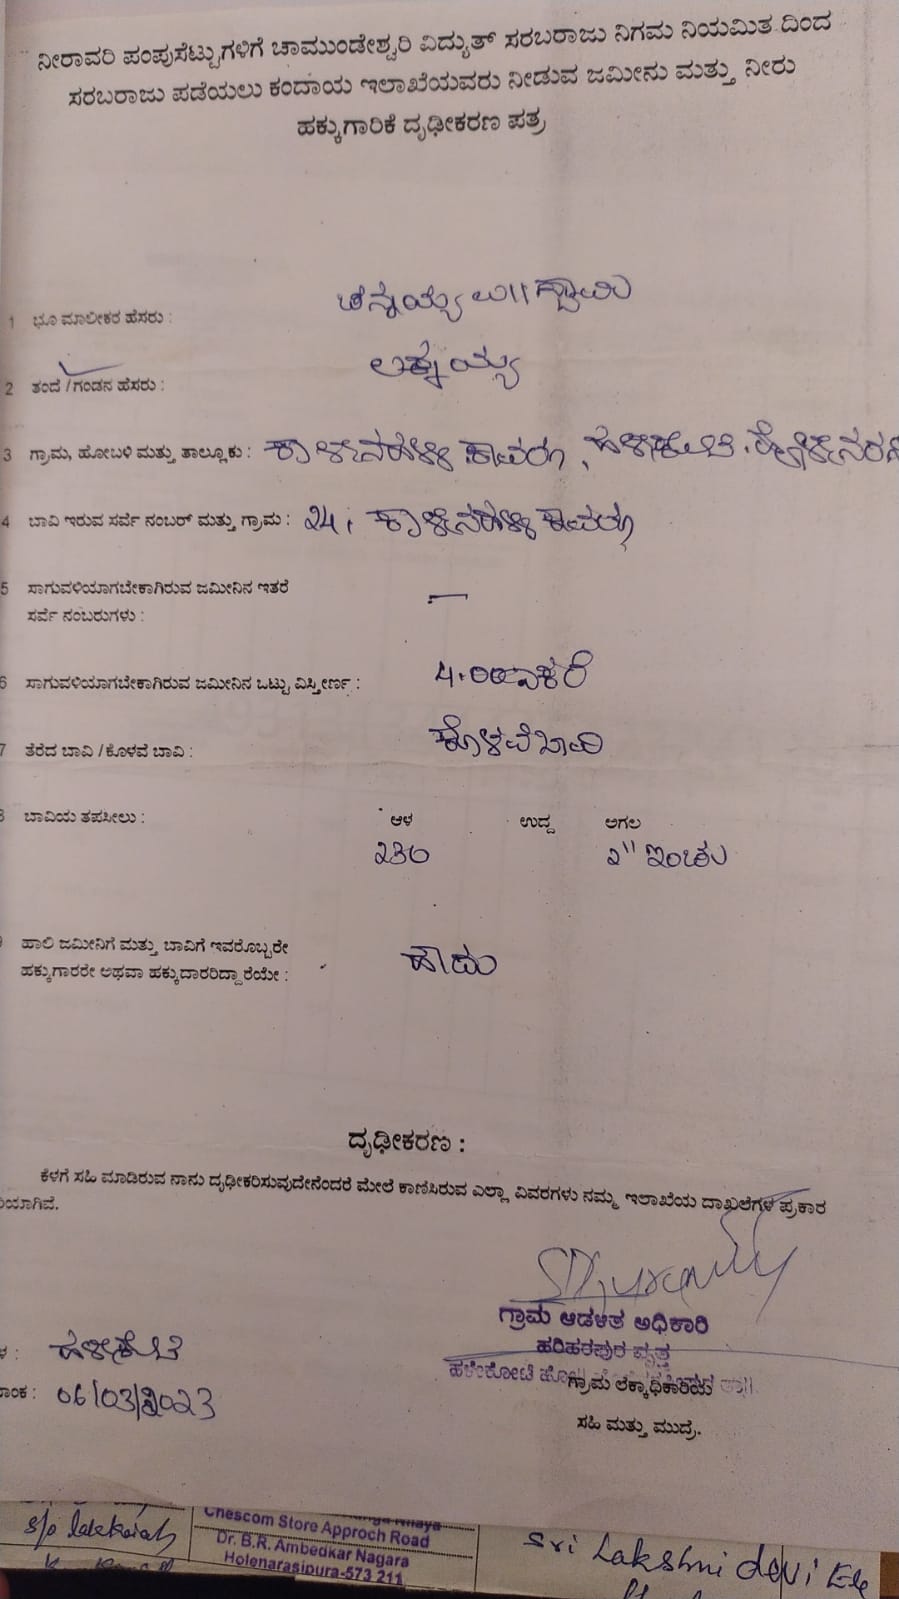 ನೀರಾವರಿ ಪಂಪುಸೆಟ್ಟುಗಳಿಗೆ ಚಾಮುಂಡೇಶ್ವರಿ ವಿದ್ಯುತ್ ಸರಬರಾಜು ನಿಗಮ ನಿಯಮಿತ ದಿಂದ
ಸರಬರಾಜು ಪಡೆಯಲು ಕಂದಾಯ ಇಲಾಖೆಯವರು ನೀಡುವ ಜಮೀನು ಮತ್ತು ನೀರು
ಹಕ್ಕುಗಾರಿಕೆ ದೃಢೀಕರಣ ಪತ್ರ
1 ಭೂ ಮಾಲೀಕರ ಹೆಸರು :
2 ತಂದೆ / ಗಂಡನ ಹೆಸರು :
3 ಗ್ರಾಮ, ಹೋಬಳಿ ಮತ್ತು ತಾಲ್ಲೂಕು :
4 ಬಾವಿ ಇರುವ ಸರ್ವೆ ನಂಬರ್ ಮತ್ತು ಗ್ರಾಮ : 24,
5 ಸಾಗುವಳಿಯಾಗಬೇಕಾಗಿರುವ ಜಮೀನಿನ ಇತರೆ —
ಸರ್ವೆ ನಂಬರುಗಳು :
6 ಸಾಗುವಳಿಯಾಗಬೇಕಾಗಿರುವ ಜಮೀನಿನ ಒಟ್ಟು ವಿಸ್ತೀರ್ಣ : 4.00 ಎಕರೆ
7 ತೆರೆದ ಬಾವಿ / ಕೊಳವೆ ಬಾವಿ : ಕೊಳವೆ ಬಾವಿ
ಬಾವಿಯ ತಪಸೀಲು : ಆಳ ಉದ್ದ ಅಗಲ
230 2" ಇಂಚು
ಹಾಲಿ ಜಮೀನಿಗೆ ಮತ್ತು ಬಾವಿಗೆ ಇವರೊಬ್ಬರೇ ಹೌದು
ಹಕ್ಕುಗಾರರೇ ಅಥವಾ ಹಕ್ಕುದಾರರಿದ್ದಾರೆಯೇ :
ದೃಢೀಕರಣ :
ಕೆಳಗೆ ಸಹಿ ಮಾಡಿರುವ ನಾನು ದೃಢೀಕರಿಸುವುದೇನೆಂದರೆ ಮೇಲೆ ಕಾಣಿಸಿರುವ ಎಲ್ಲಾ ವಿವರಗಳು ನಮ್ಮ ಇಲಾಖೆಯ ದಾಖಲೆಗಳ ಪ್ರಕಾರ
ಯಾಗಿವೆ.
ಗ್ರಾಮ ಆಡಳಿತ ಅಧಿಕಾರಿ
ಹರಿಹರಪುರ ವೃತ್ತ
ಗ್ರಾಮ ಲೆಕ್ಕಾಧಿಕಾರಿಯ
06/03/2023
ಸಹಿ ಮತ್ತು ಮುದ್ರೆ.
Chescom Store Approch Road
Dr. B.R. Ambedkar Nagara
Holenarasipura-573 211
S/o lakkaiah
Sri Lakshmi devi Ele